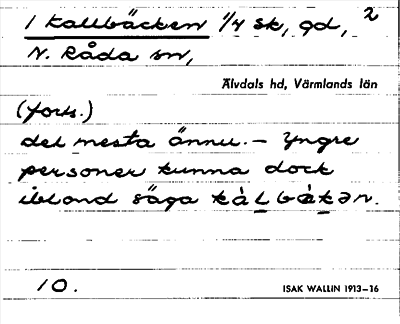 1 Kallbäcken 1/4 sk, gd, 2
N. Råda sn,
Älvdals hd, Värmlands län
(forts.)
det mesta ännu. – Yngre
personer kunna dock
ibland säga kàlbàkən.
10.
ISAK WALLIN 1913–16